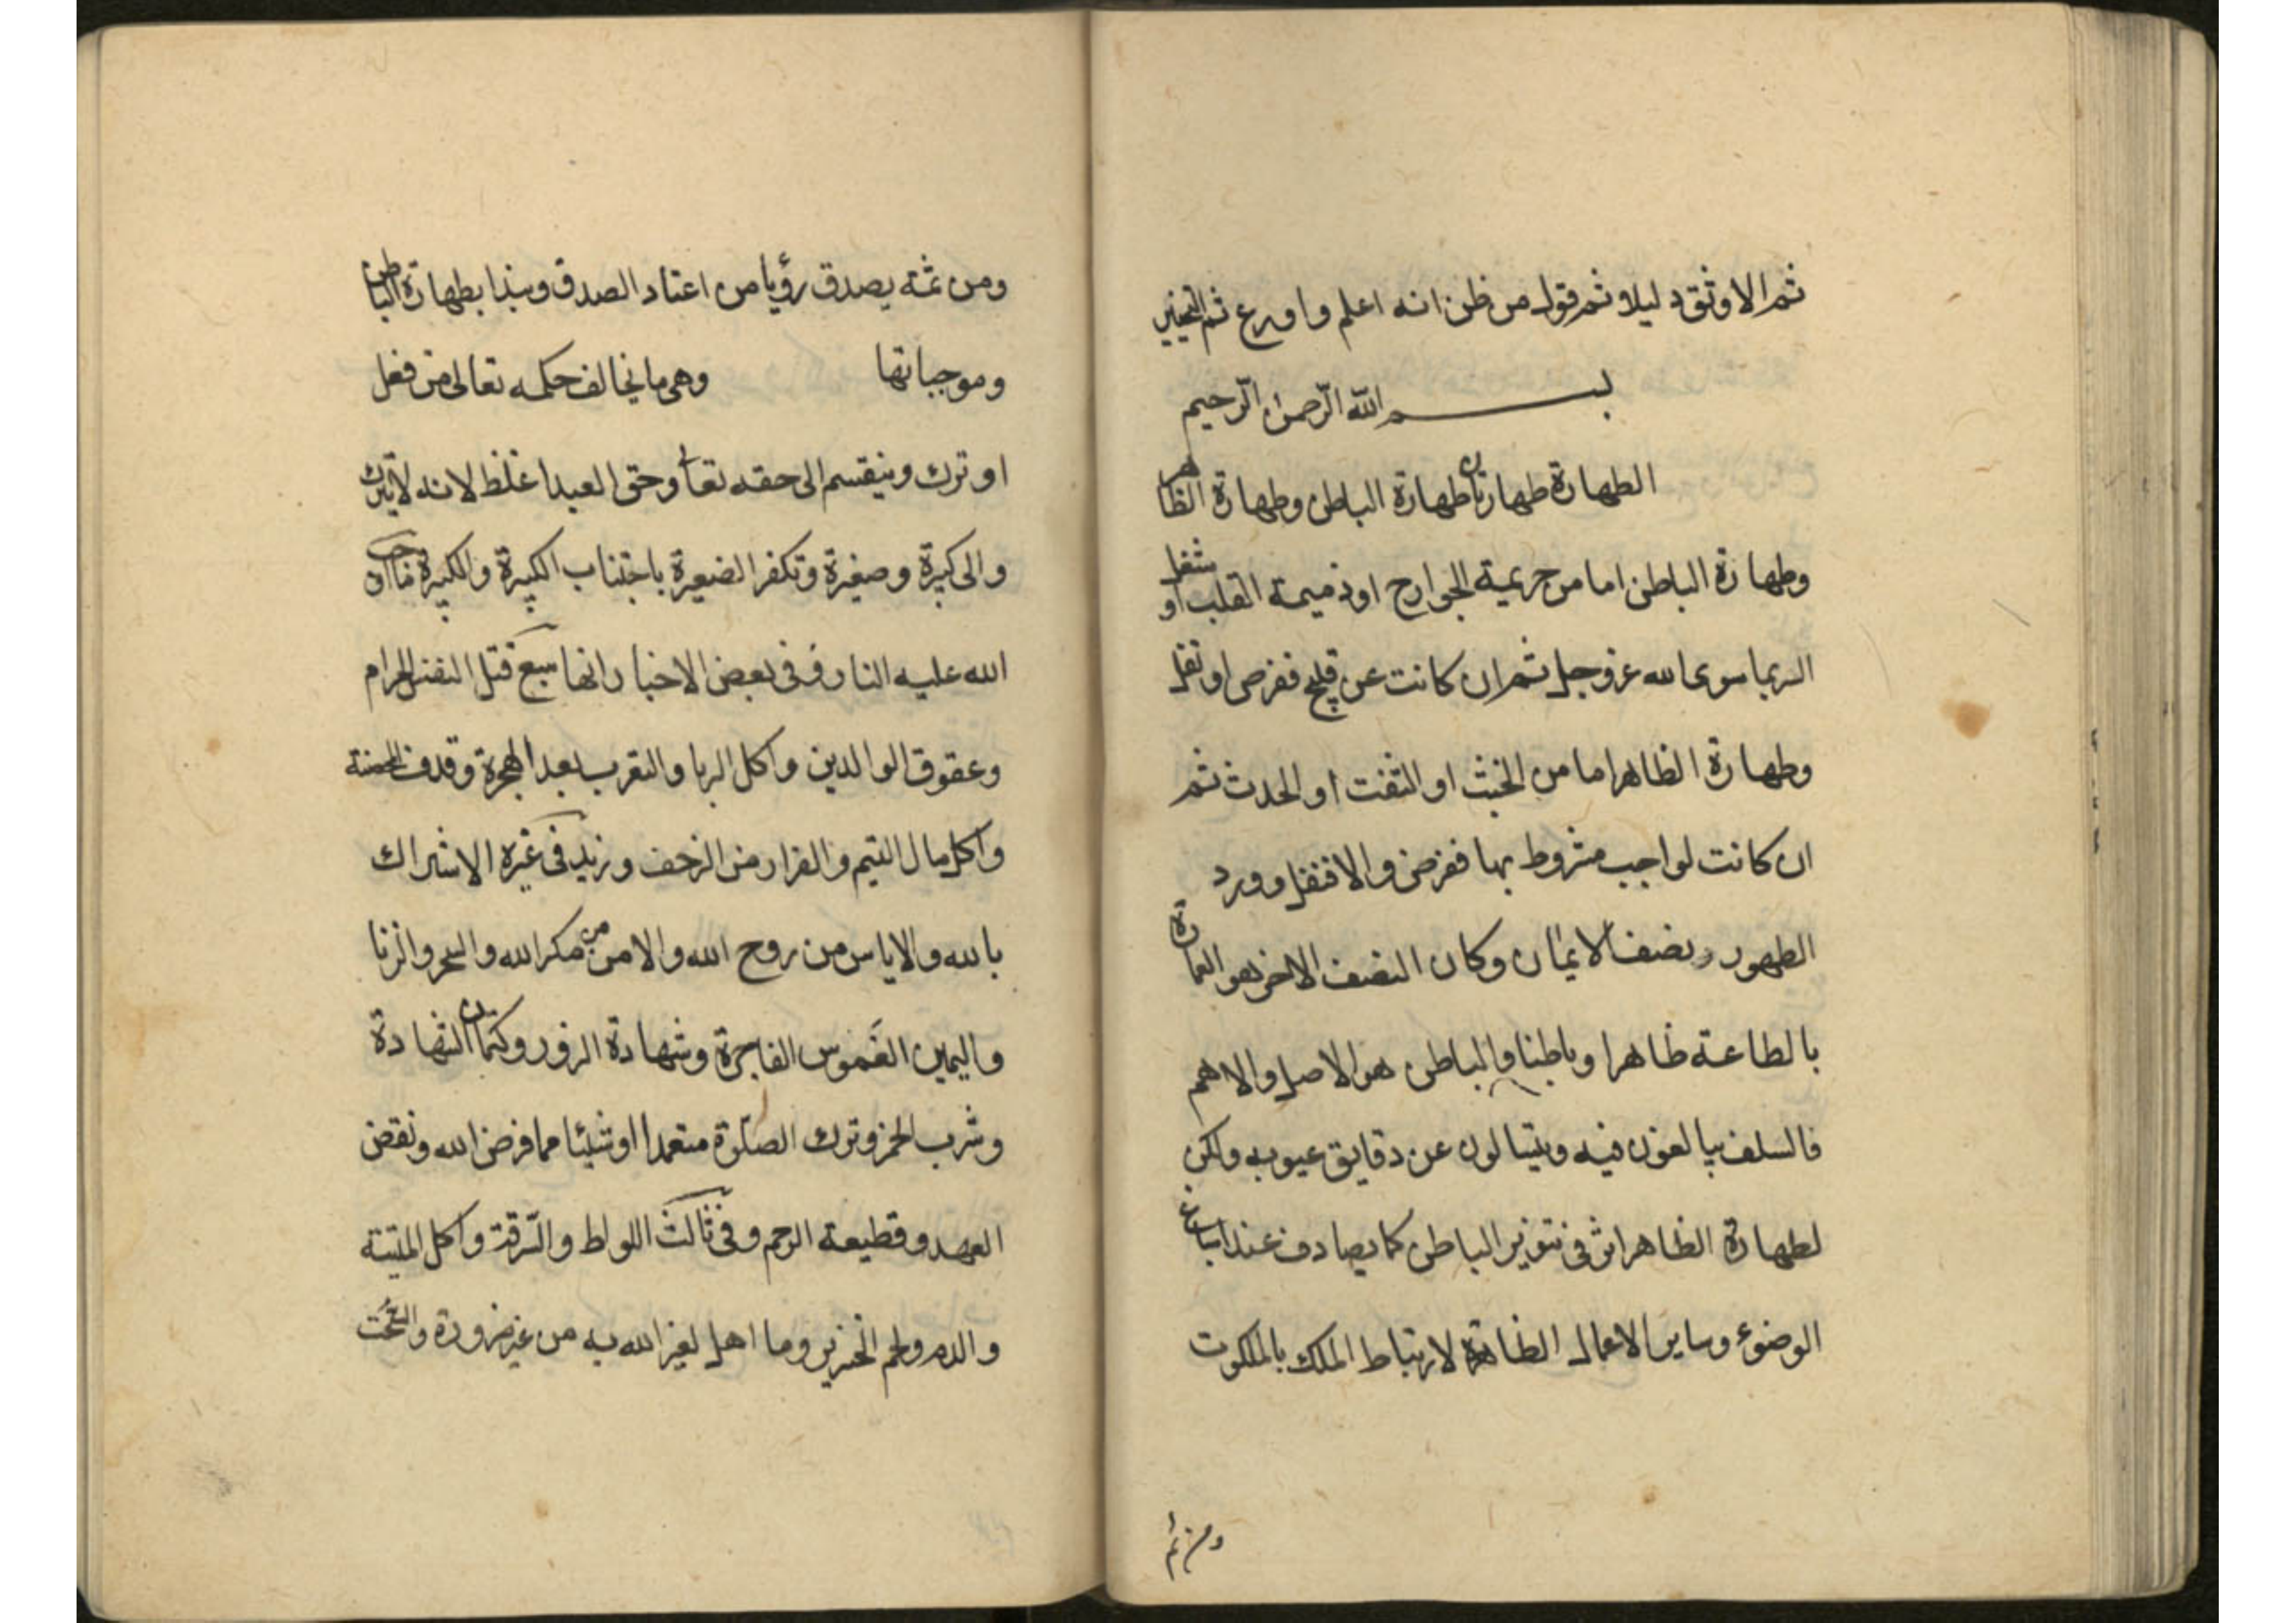 ثم الاوثق دليلا ثم قول من ظن انه اعلم واورع ثم التخيير
بسم الله الرّحمن الرّحيم
الطهارة طهارتان طهارة الباطن وطهارة الظاهر
وطهارة الباطن اما من جريمة الجوارح او ذميمة القلب او شغل
السر بما سوى الله عز وجل ثم ان كانت عن قبيح ففرض او نفل
وطهارة الظاهر اما من الخبث او التفث او الحدث ثم
ان كانت لواجب مشروط بها ففرض والا فنفل وورد
الطهور نصف الايمان وكان النصف الاخر هو العمارة
بالطاعة ظاهرا وباطنا والباطن هو الاصل والاهم
فالسلف يبالغون فيه ويتسالون عن دقايق عيوبه ولكن
لطهارة الظاهر اثر في تنوير الباطن كما يصادف عند اسباغ
الوضوء وساير الاعمال الظاهرة لارتباط الملك بالملكوت
ومن ثم
ومن ثمة يصدق رؤيا من اعتاد الصدق ونبذا بطهارة الباطن
وموجباتها وهي ما يخالف حكمه تعالى من فعل
او ترك وينقسم الى حقه تعا وحق العبد اغلظ لانه لا يترك
والى كبيرة وصغيرة وتكفر الصغيرة باجتناب الكبيرة والكبيرة ما اوجب
الله عليه النار وفى بعض الاخبار انها سبع قتل النفس الحرام
وعقوق الوالدين واكل الربا والتعرب بعد الهجرة وقذف المحصنة
واكل مال اليتيم والفرار من الزحف وزيد فى غيره الاشراك
بالله والاياس من روح الله والامن من مكر الله والسحر والزنا
واليمين الغموس الفاجرة وشهادة الزور وكتمان الشهادة
وشرب الخمر وترك الصلوة متعمدا او شيئا مما فرض الله ونقض
العهد وقطيعة الرحم وفى ثالث اللواط والسّرقة واكل الميتة
والدم ولحم الخنزير وما اهل لغير الله به من غير ضرورة والسُّحت